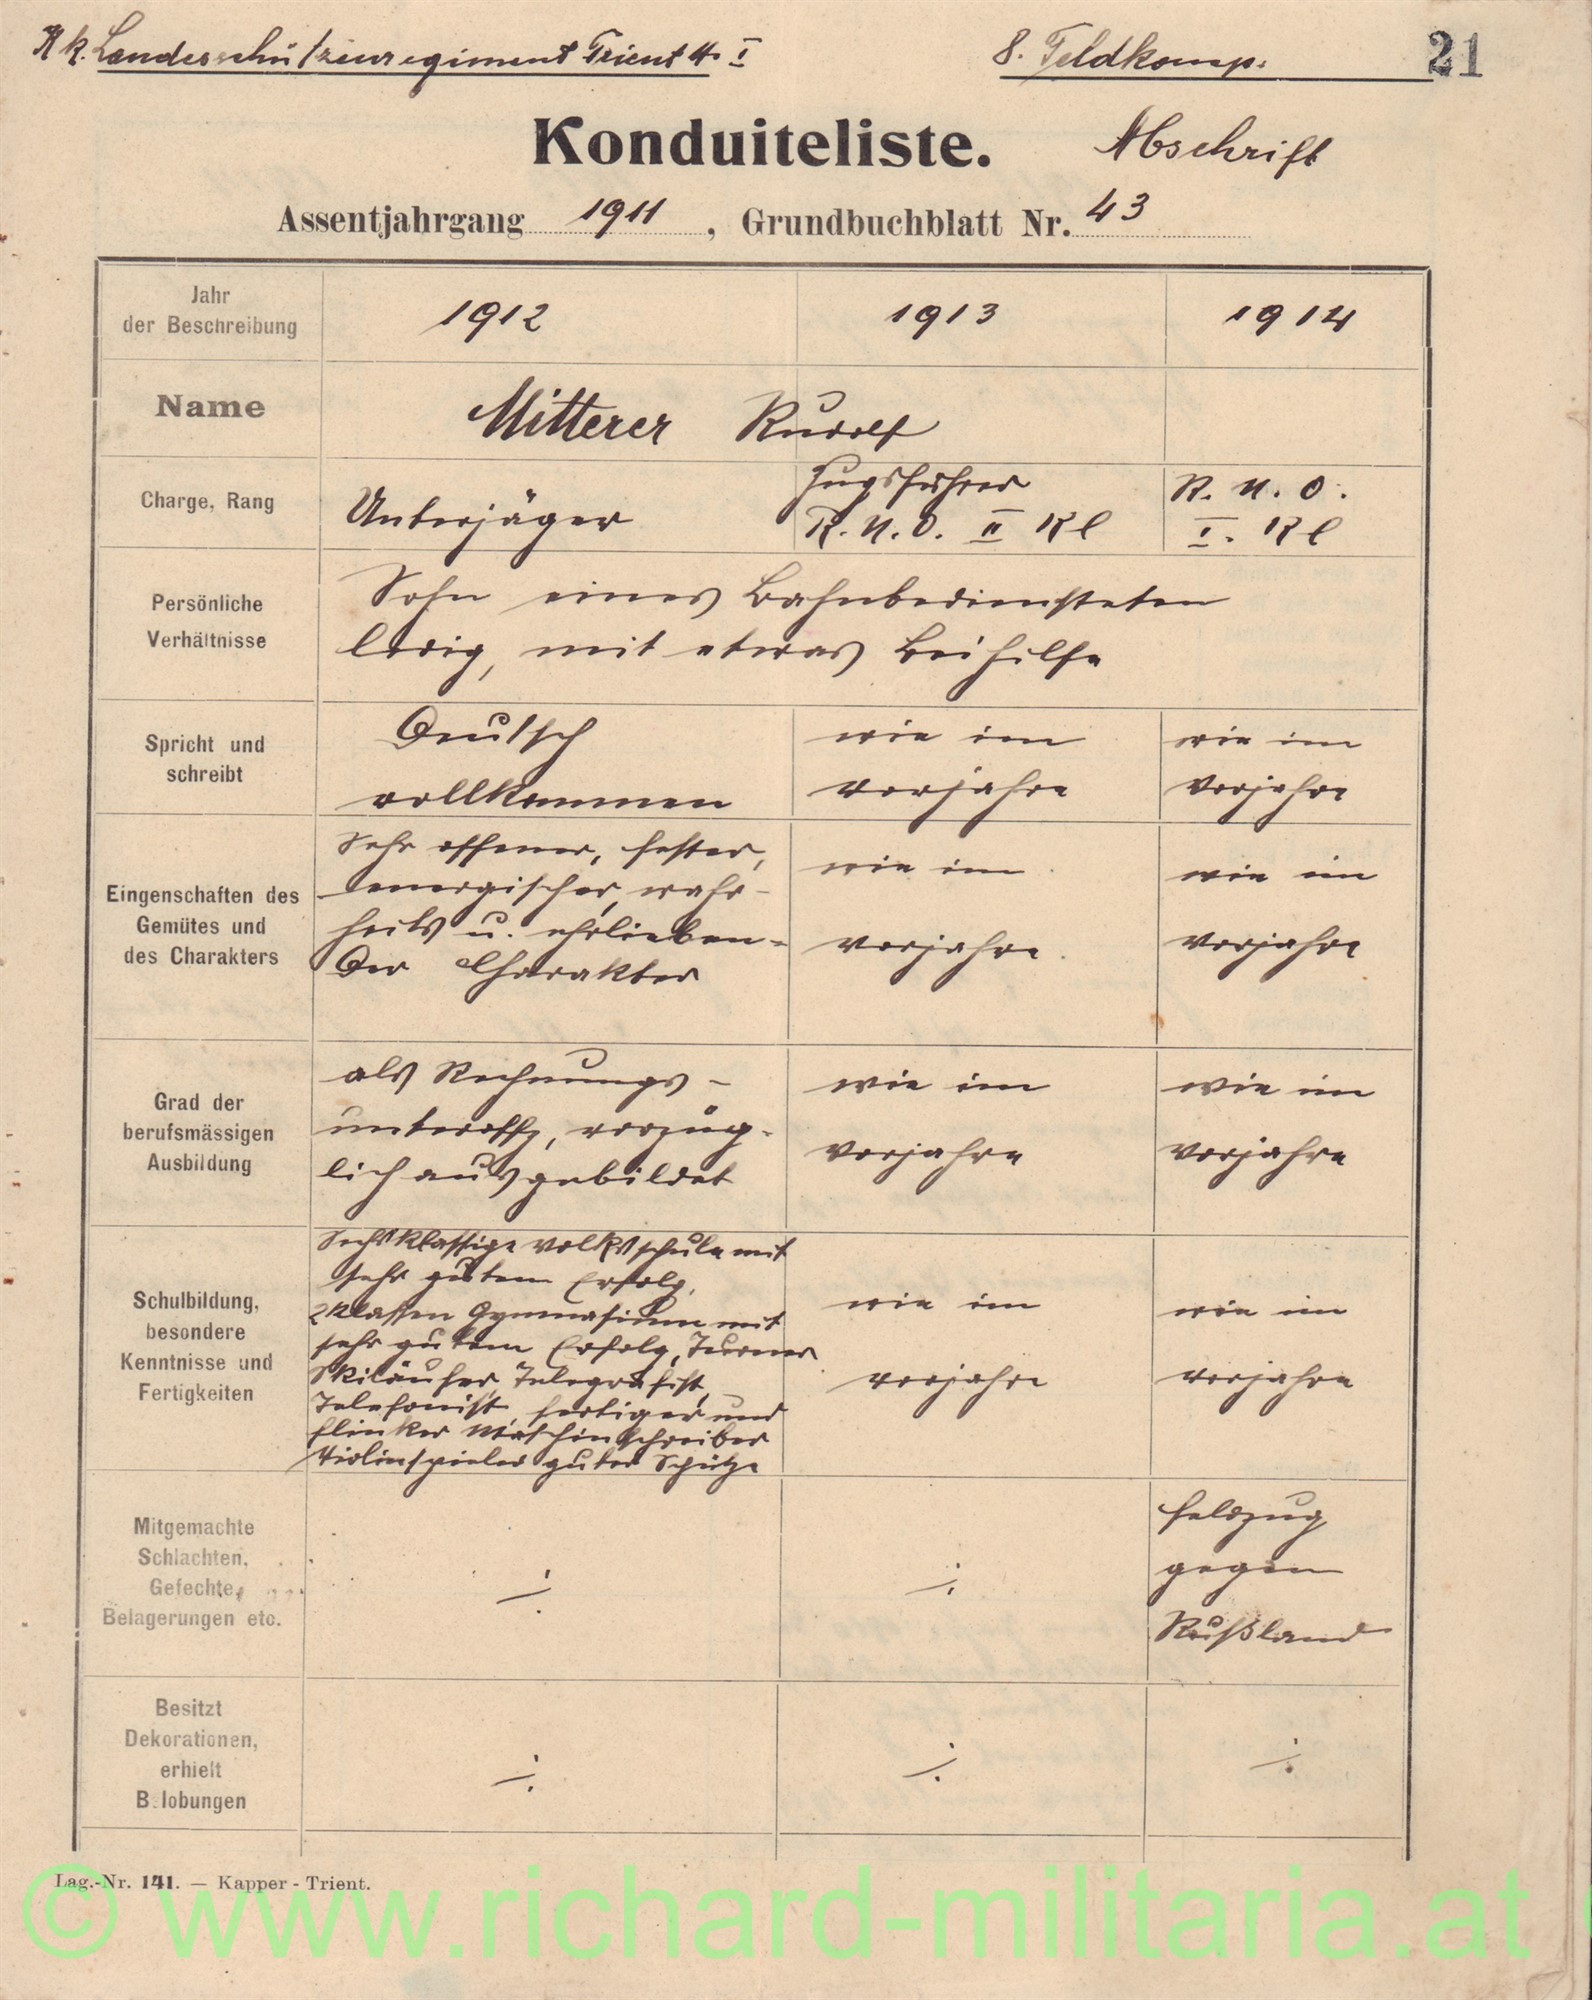 K. k. Landesschützenregiment Trient N. I
8. Feldkomp.
21
Konduiteliste.
Abschrift
Assentjahrgang 1911, Grundbuchblatt Nr. 43
Jahr
der Beschreibung
1912
1913
1914
Name
Mitterer Rudolf
Charge, Rang
Unterjäger
Zugsführer
R. U. O. II Kl
R. U. O.
I. Kl
Persönliche
Verhältnisse
Sohn eines Bahnbediensteten
ledig, mit etwas Beihilfe
Spricht und
schreibt
Deutsch
vollkommen
wie im
Vorjahre
wie im
Vorjahre
Eingenschaften des
Gemütes und
des Charakters
Sehr offener, fester,
energischer, wahr-
heits u. ehrlieben-
der Charakter
wie im
Vorjahre.
wie im
Vorjahre
Grad der
berufsmässigen
Ausbildung
als Rechnungs-
unteroffz, vorzüg-
lich ausgebildet
wie im
Vorjahre
wie im
Vorjahre
Schulbildung,
besondere
Kenntnisse und
Fertigkeiten
Sechsklassige Volksschule mit
sehr gutem Erfolg,
2 Klassen Gymnasium mit
sehr gutem Erfolg, Turner
Skiläufer, Telegrafist,
Telefonist, fertiger und
flinker Maschinschreiber
Violinspieler guter Schütze
wie im
Vorjahre
wie im
Vorjahre
Mitgemachte
Schlachten,
Gefechte,
Belagerungen etc.
÷
÷
Feldzug
gegen
Rußland
Besitzt
Dekorationen,
erhielt
B.lobungen
÷
÷
÷
Lag.-Nr. 141. — Kapper - Trient.
© www.richard-militaria.at